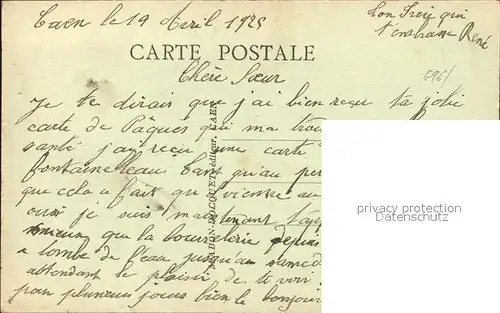 Caen le 19 Avril 1925
Ton Frère qui
t'embrasse René
CARTE POSTALE
Chère Sœur
686/
Je te dirais que j'ai bien reçu ta jolie
carte de Pâques qui ma trou
santé j'ai reçu une carte
Fontainebleau tant qu'au per
que cela a fait qu'il vienne au
oui je suis maintenant
mieux que la boucherie depuis
a tombé de l'eau jusqu'au samedi
attendant le plaisir de te voir
pour plusieurs jours bien le bonjour
éditeur, CAEN
privacy protection
Datenschutz